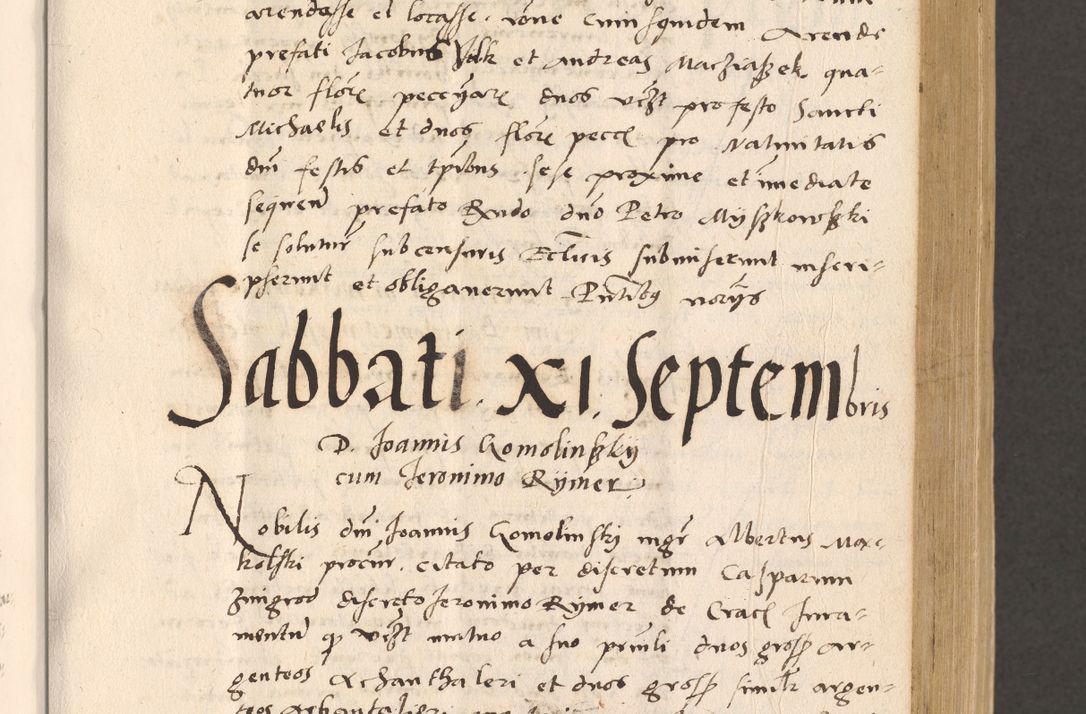 arendasse et locasse. rone cuiusquidem Arende
prefati Jacobus Wilk et Andreas Maziaßek qua-
tuor flore peccyare duos vidzt pro festo Sancti
Michaelis et duos flore pecc pro Natiuitatis
dni festis et tpibus sese proxime et immediate
sequen prefato Rndo dno Petro Myßkowßki
se soluturi sub censuris Ecclicis submiserunt inscri-
pserunt et obligauerunt Pntibq norijs
Sabbati. XI. Septembris
D. Joannis Gomolinßkij
cum Jeronimo Rymer.
Nobilis dni Joannis Gomolinskj mgr Albertus Mar-
kolski procur. citato per discretum Casparum
zmigrod discreto Jeronimo Rymer de Crac Jura-
mentu q vidzt mutuo a suo prinli duos gross ar-
genteos Achanthaleri et duos gross similr argen-